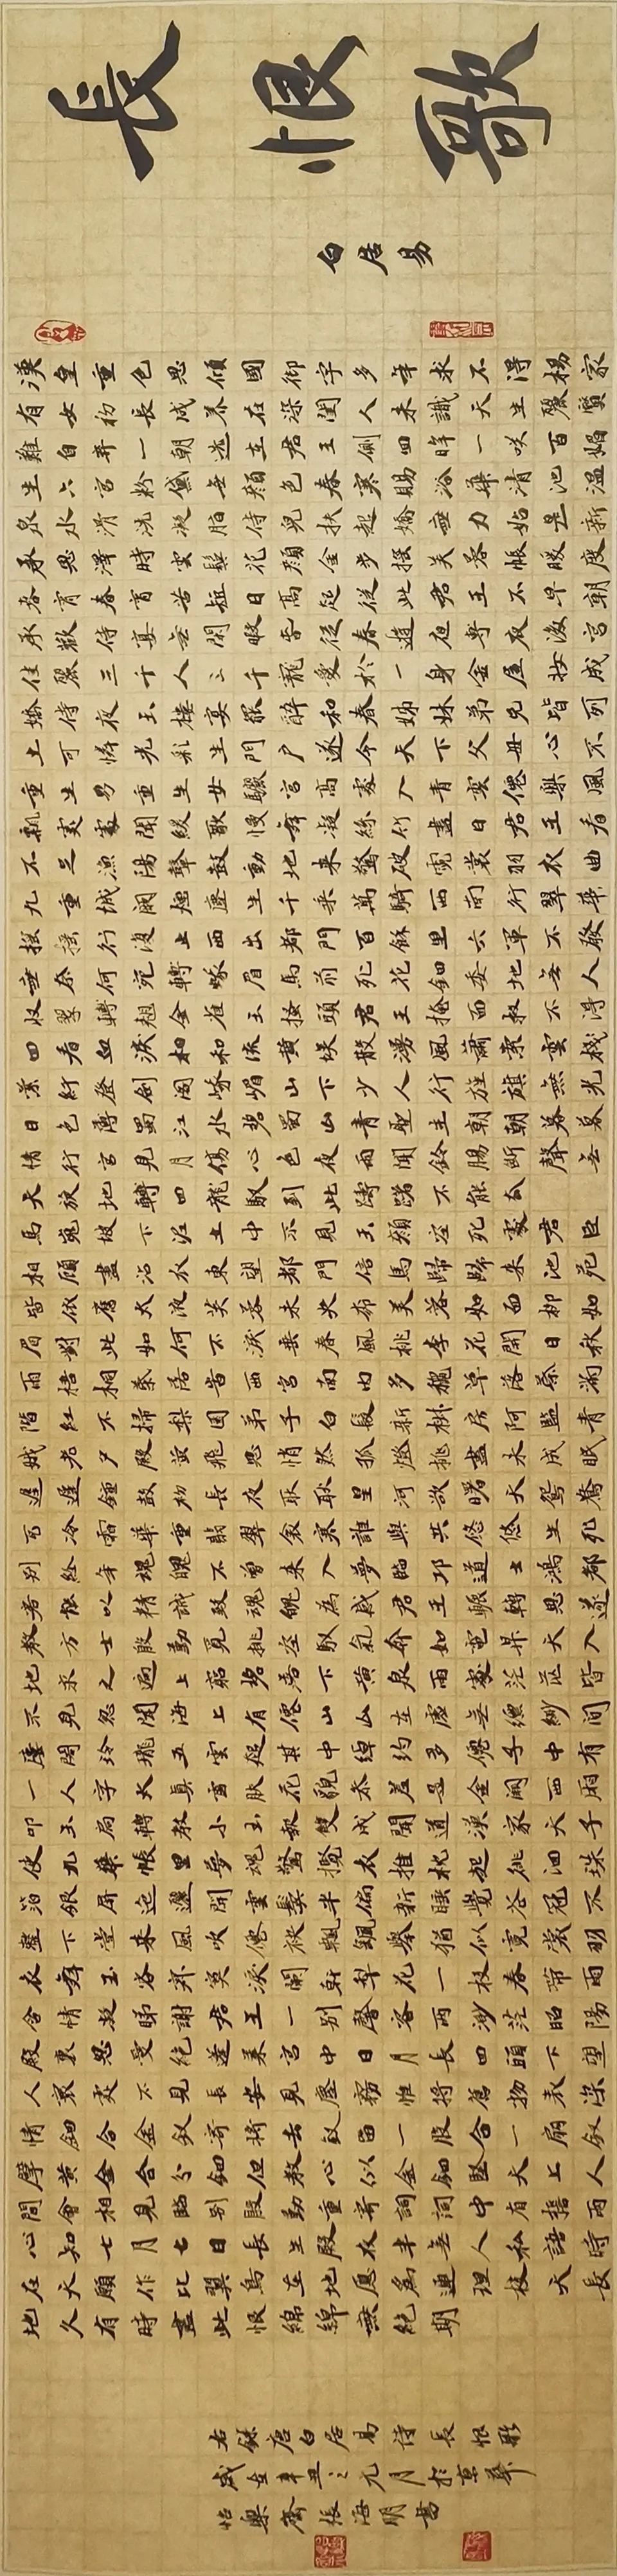 長恨歌
白居易
漢皇重色思傾國御宇多年求不得楊家
有女初長成養在深閨人未識天生麗質
難自棄一朝選在君王側回眸一笑百媚
生六宮粉黛無顏色春寒賜浴華清池溫
泉水滑洗凝脂侍兒扶起嬌無力始是新
承恩澤時雲鬢花顏金步搖芙蓉帳暖度
春宵春宵苦短日高起從此君王不早朝
承歡侍宴無閑暇春從春遊夜專夜後宮
佳麗三千人三千寵愛於一身金屋妝成
嬌侍夜玉樓宴罷醉和春姊妹弟兄皆列
土可憐光彩生門戶遂令天下父母心不
重生男重生女驪宮高處入青雲仙樂風
飄處處聞緩歌慢舞凝絲竹盡日君王看
不足漁陽鼙鼓動地來驚破霓裳羽衣曲
九重城闕煙塵生千乘萬騎西南行翠華
搖搖行復止西出都門百餘里六軍不發
無奈何宛轉蛾眉馬前死花鈿委地無人
收翠翹金雀玉搔頭君王掩面救不得
回看血淚相和流黃埃散漫風蕭索雲棧
縈紆登劍閣峨嵋山下少人行旌旗無光
日色薄蜀江水碧蜀山青聖主朝朝暮暮
情行宮見月傷心色夜雨聞鈴腸斷聲
天旋地轉回龍馭到此躊躇不能去
馬嵬坡下泥土中不見玉顏空死處君臣
相顧盡沾衣東望都門信馬歸歸來池苑
皆依舊太液芙蓉未央柳芙蓉如面柳如
眉對此如何不淚垂春風桃李花開日秋
雨梧桐葉落時西宮南內多秋草落葉滿
階紅不掃梨園弟子白髮新椒房阿監青
娥老夕殿螢飛思悄然孤燈挑盡未成眠
遲遲鐘鼓初長夜耿耿星河欲曙天鴛鴦
瓦冷霜華重翡翠衾寒誰與共悠悠生死
別經年魂魄不曾來入夢臨邛道士鴻都
客能以精誠致魂魄為感君王輾轉思遂
教方士殷勤覓排空馭氣奔如電昇天入
地求之遍上窮碧落下黃泉兩處茫茫皆
不見忽聞海上有仙山山在虛無縹緲間
樓閣玲瓏五雲起其中綽約多仙子中有
一人字太真雪膚花貌參差是金闕西廂
叩玉扃轉教小玉報雙成聞道漢家天子
使九華帳裡夢魂驚攬衣推枕起徘徊珠
箔銀屏迤邐開雲鬢半偏新睡覺花冠不
整下堂來風吹仙袂飄颻舉猶似霓裳羽
衣舞玉容寂寞淚闌干梨花一枝春帶雨
含情凝睇謝君王一別音容兩渺茫昭陽
殿裡恩愛絕蓬萊宮中日月長回頭下望
人寰處不見長安見塵霧惟將舊物表深
情鈿合金釵寄將去釵留一股合一扇釵
擘黃金合分鈿但教心似金鈿堅天上人
間會相見臨別殷勤重寄詞詞中有誓兩
心知七月七日長生殿夜半無人私語時
在天願作比翼鳥在地願為連理枝天長
地久有時盡此恨綿綿無絕期
右錄唐白居易詩長恨歌
歲在辛丑之元月於京華
怡樂齋張海明書